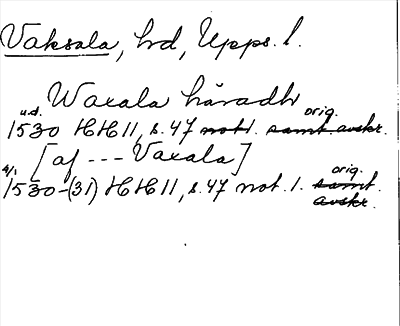 Vaksala, hd, Upps. l.
Waxala häradh
u.d. orig.
1530 HH 11, s. 47 not 1. samt. avskr.
[af --- Vaxala]
4/1 orig.
1530-(31) HH 11, s. 47 not. 1. samt.
avskr.